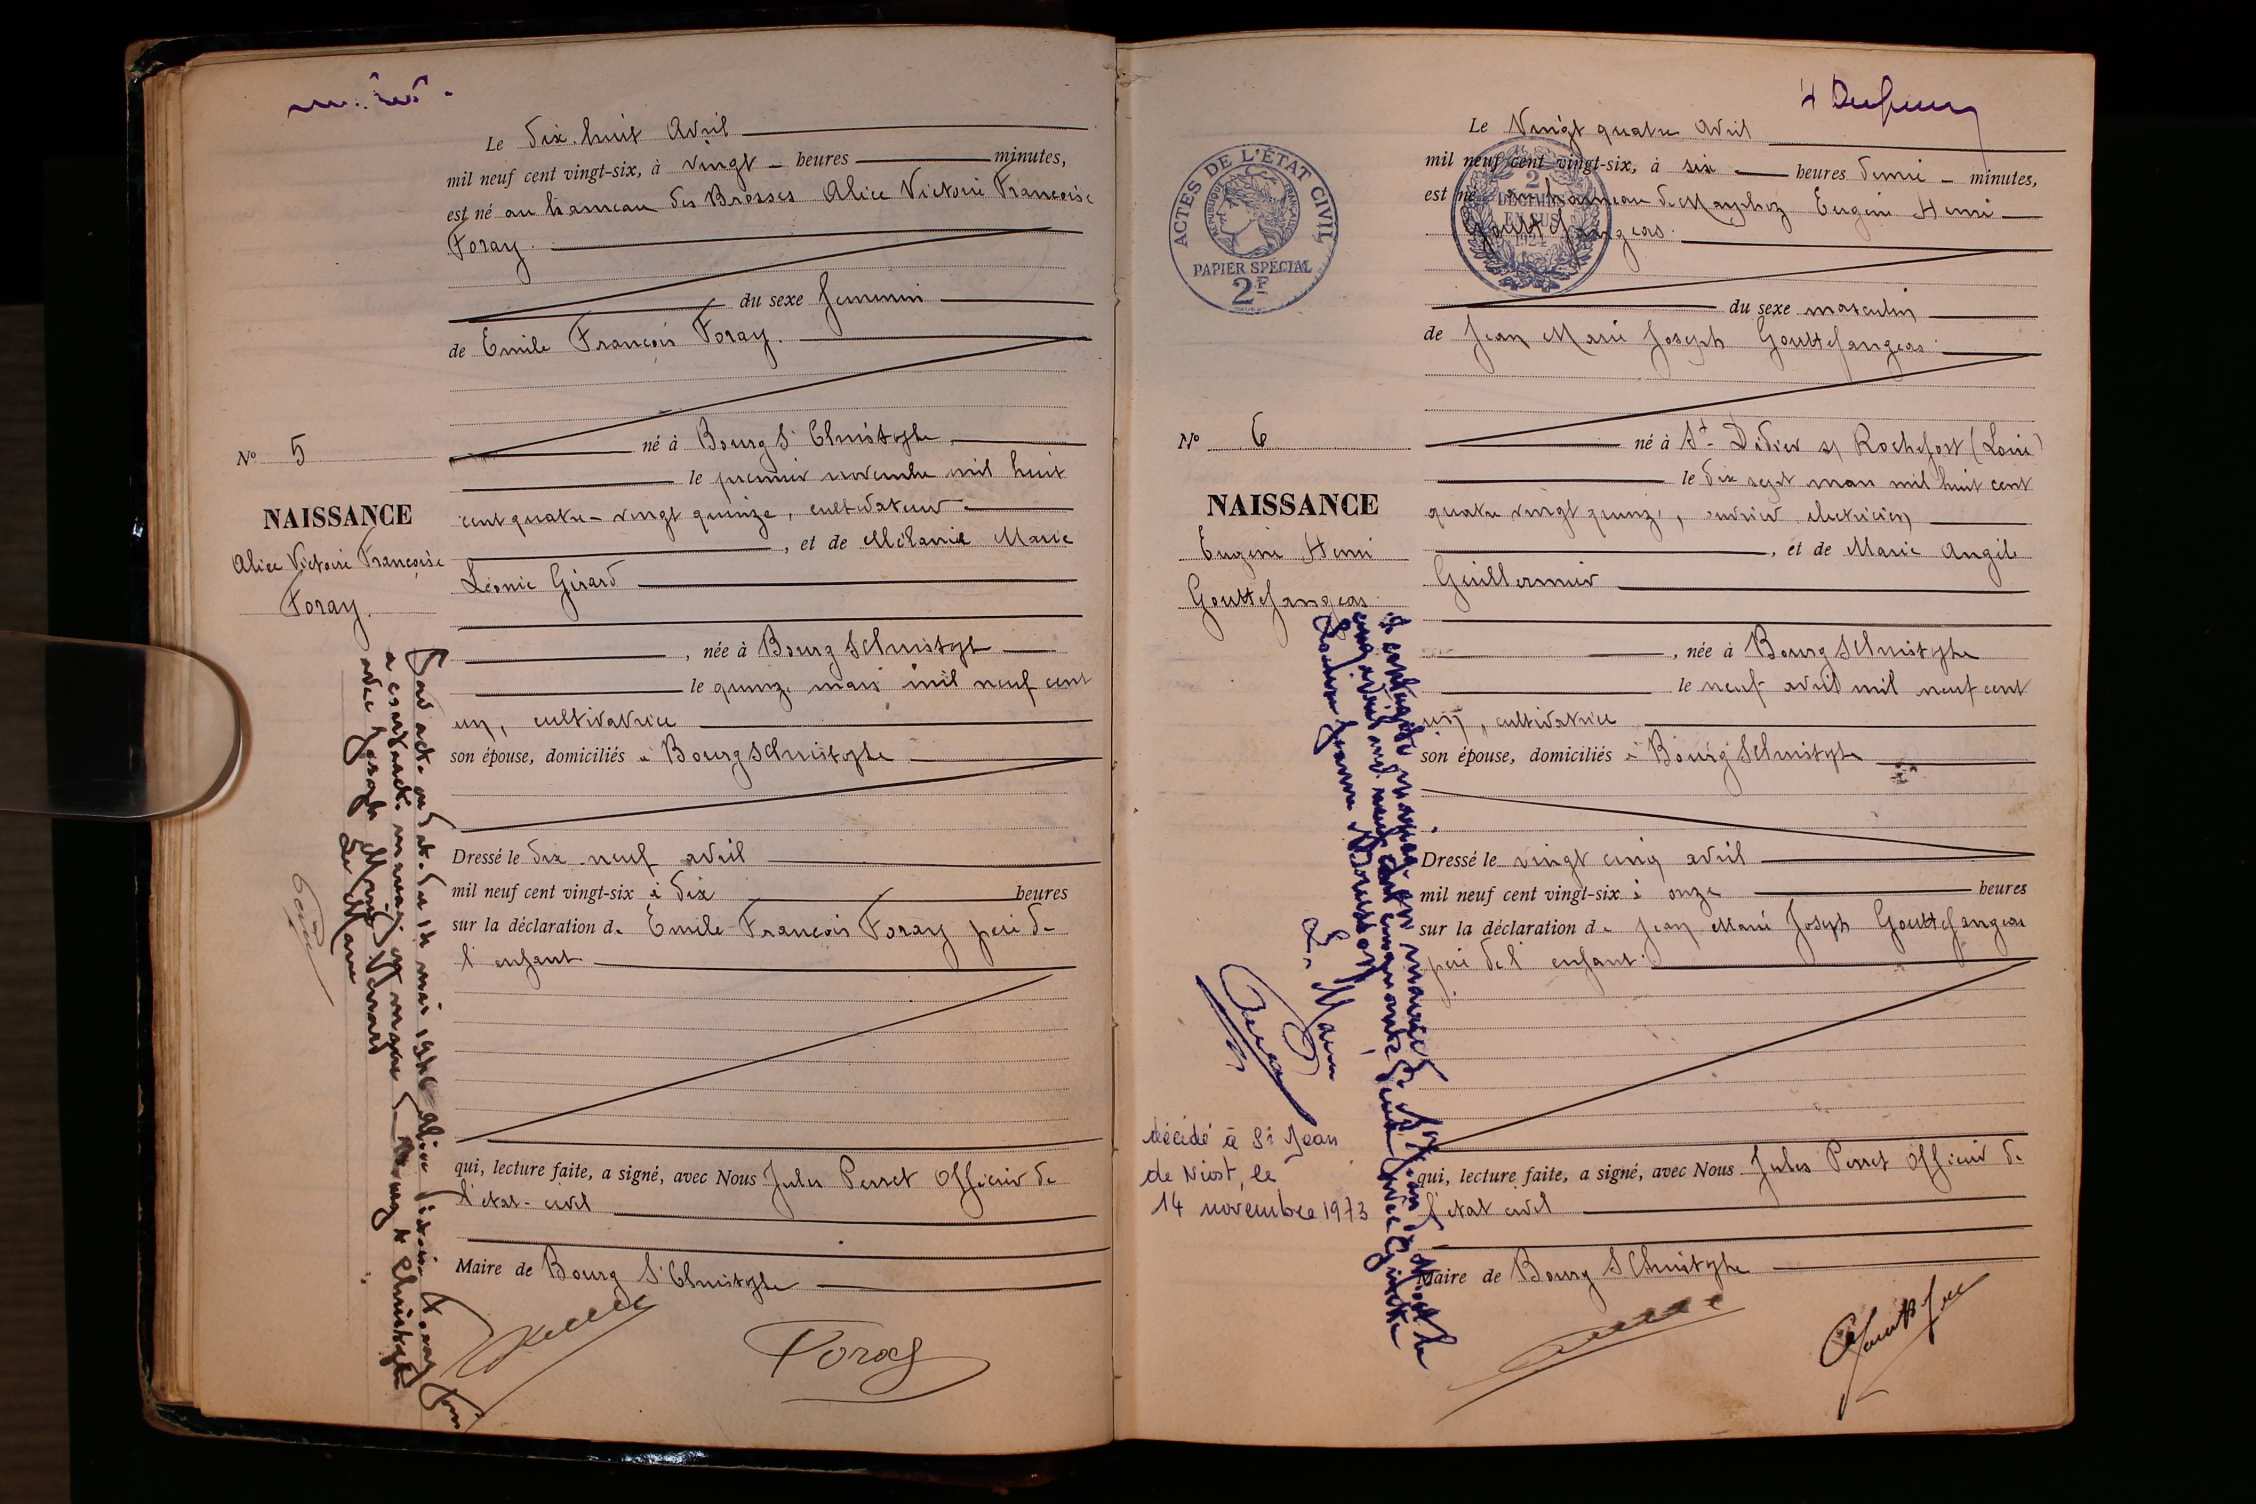 Le dix-huit Avril
mil neuf cent vingt-six, à vingt heures minutes,
est né au hameau des Brosses Alice Victoire Françoise
Foray.
du sexe féminin
de Emile François Foray.
né à Bourg St Christophe
le premier novembre mil huit
cent quatre-vingt quinze, cultivateur
, et de Mélanie Marie
Léonie Girard
, née à Bourg St Christophe
le quinze mars mil neuf cent
un, cultivatrice
son épouse, domiciliés à Bourg St Christophe
Dressé le dix-neuf avril
mil neuf cent vingt-six à dix heures
sur la déclaration de Emile François Foray père de
l'enfant
qui, lecture faite, a signé, avec Nous Jules Perret Officier de
l'état-civil
Maire de Bourg St Christophe
Foray
No 5
NAISSANCE
Alice Victoire Françoise
Foray.
Par acte en date du 14 mai 1946 Alice Victoire Foray
a contracté mariage en mairie de Bourg St Christophe
avec Joseph Marie
Le Maire
Le Vingt quatre Avril
mil neuf cent vingt-six, à six heures demie minutes,
est né au hameau de Marphoz Eugène Henri
Gouttefangeas.
du sexe masculin
de Jean Marie Joseph Gouttefangeas.
né à St Didier s/ Rochefort (Loire)
le dix sept mars mil huit cent
quatre vingt quinze, ouvrier électricien
, et de Marie Angèle
Guillermier
, née à Bourg St Christophe
le neuf avril mil neuf cent
un, cultivatrice
son épouse, domiciliés à Bourg St Christophe
Dressé le vingt cinq avril
mil neuf cent vingt-six à onze heures
sur la déclaration de Jean Marie Joseph Gouttefangeas
père de l'enfant.
qui, lecture faite, a signé, avec Nous Jules Perret Officier de
l'état civil
Maire de Bourg St Christophe
ACTES DE L'ÉTAT CIVIL
RÉPUBLIQUE FRANÇAISE
PAPIER SPÉCIAL
2F
2
DÉCIMES
EN SUS
1924
No 6
NAISSANCE
Eugène Henri
Gouttefangeas.
A contracté mariage en mairie de St Jean de Niost le
cinq avril mil neuf cent cinquante deux avec Ginette
Jeanne
Le Maire
décédé à St Jean
de Niost, le
14 novembre 1973